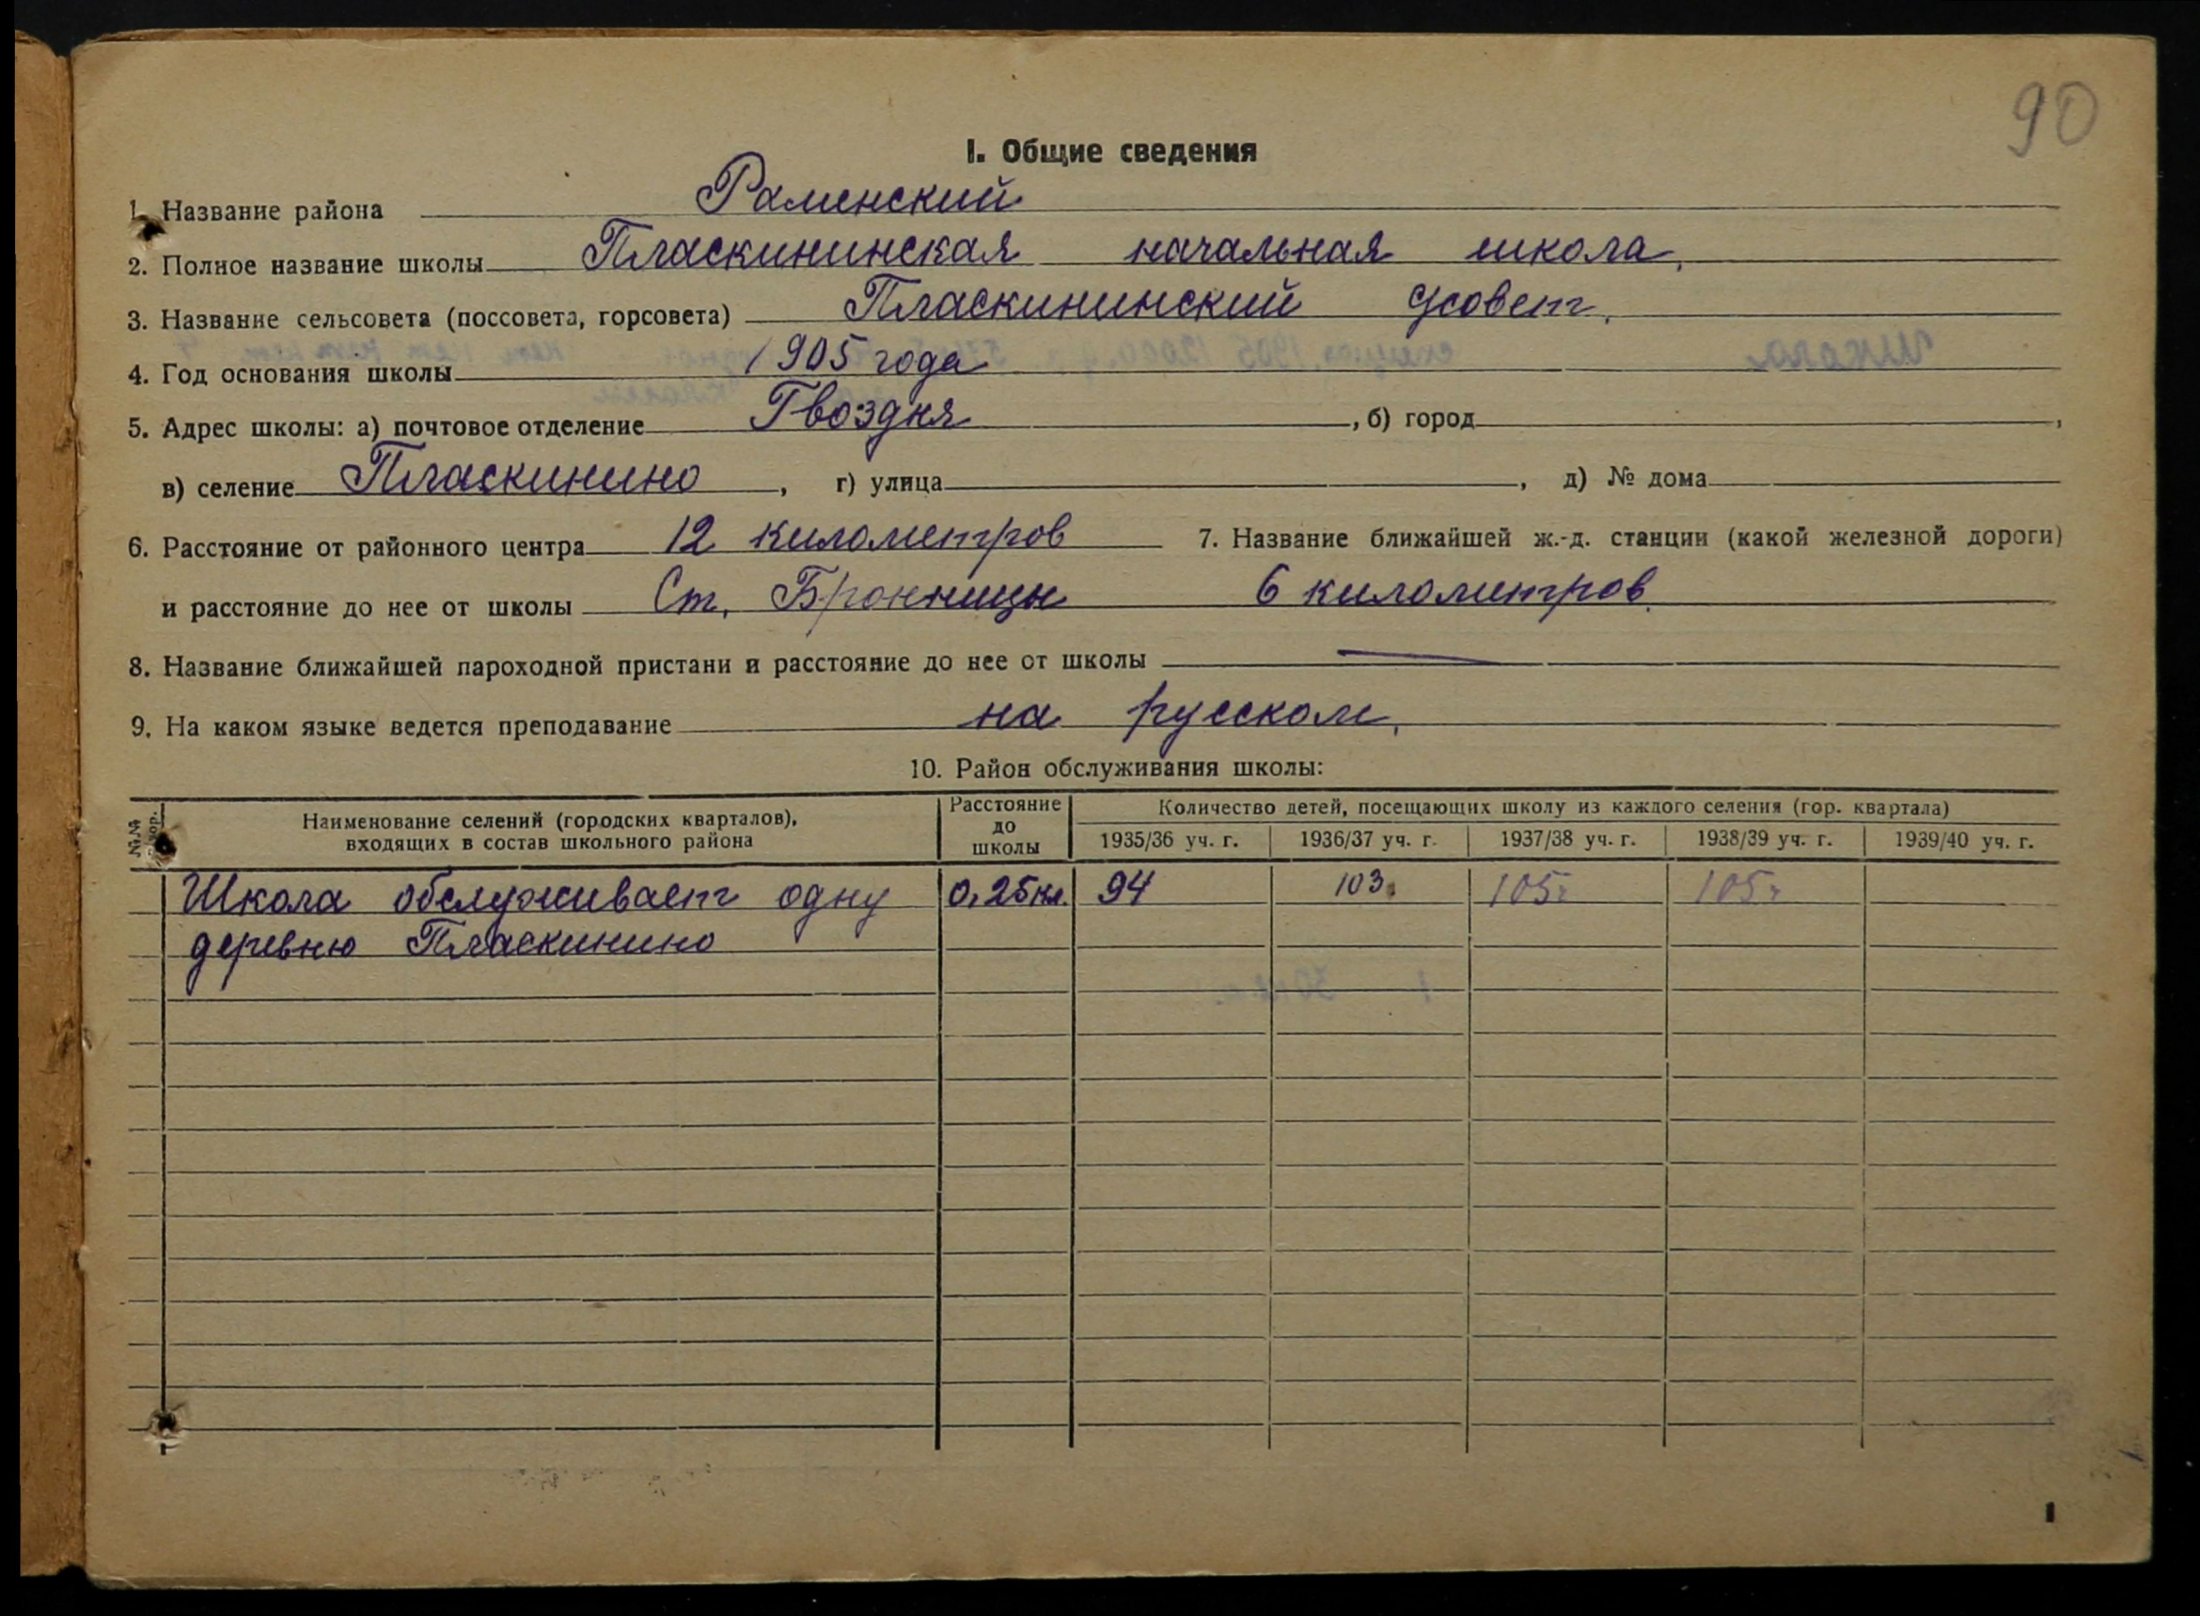 90
I. Общие сведения
1. Название района Раменский
2. Полное название школы Пласкининская начальная школа.
3. Название сельсовета (поссовета, горсовета) Пласкининский с/совет.
4. Год основания школы 1905 года
5. Адрес школы: а) почтовое отделение Гвоздня, б) город ,
в) селение Пласкинино, г) улица , д) № дома
6. Расстояние от районного центра 12 километров 7. Название ближайшей ж.-д. станции (какой железной дороги)
и расстояние до нее от школы Ст. Бронницы 6 километров.
8. Название ближайшей пароходной пристани и расстояние до нее от школы —
9. На каком языке ведется преподавание на русском.
10. Район обслуживания школы:
№№ Наименование селений (городских кварталов), входящих в состав школьного района Расстояние до школы Количество детей, посещающих школу из каждого селения (гор. квартала)
1935/36 уч. г. 1936/37 уч. г. 1937/38 уч. г. 1938/39 уч. г. 1939/40 уч. г.
Школа обслуживает одну 0,25км. 94 103 105 105
деревню Пласкинино
1